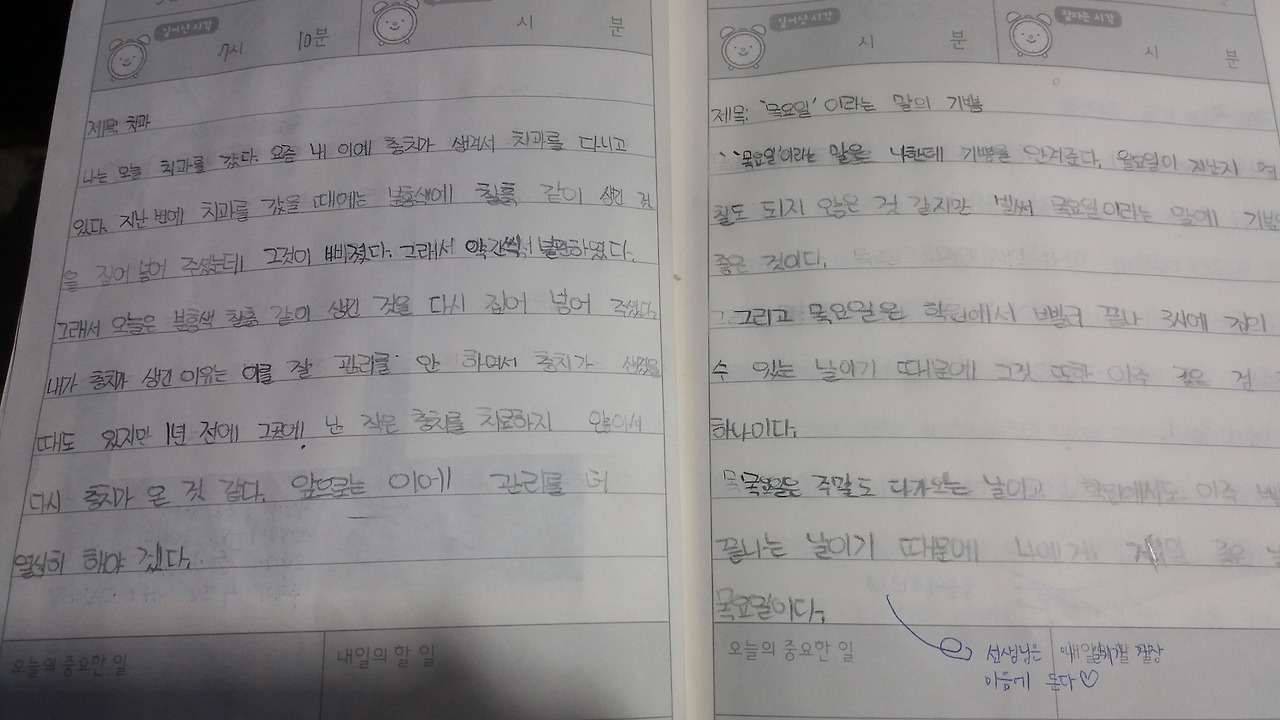 일어난시각
7시 10분
시 분
제목: 치과
나는 오늘 치과를 갔다. 요즘 내 이에 충치가 생겨서 치과를 다니고
있다. 지난 번에 치과를 갔을 때에는 분홍색에 찰흙 같이 생긴 것
을 집어 넣어 주셨는데 그것이 삐져졌다. 그래서 약간씩 불편하였다.
그래서 오늘은 분홍색 찰흙 같이 생긴 것을 다시 집어 넣어 주셨다.
내가 충치가 생긴 이유는 이를 잘 관리를 안 하면서 충치가 생겼을
때도 있지만 1년 전에 그곳에 난 작은 충치를 치료하지 않아서
다시 충치가 온 것 같다. 앞으로는 이에 관리를 더
열심히 해야 겠다.
오늘의 중요한 일
내일의 할 일
일어난시각
시 분
잠자는 시각
시 분
제목: '목요일' 이라는 말의 기쁨
'목요일'이라는 말은 나한테 기쁨을 안겨준다. 월요일이 지난지 며
칠도 되지 않은 것 같지만 벌써 목요일이라는 말에 기분
좋은 것이다.
그리고 목요일은 학원에서 빨리 끝나 3시에 집의
수 있는 날이기 때문에 그것 또한 아주 좋은 점
하나이다.
목요일은 주말도 다가오는 날이고 학원에서도 아주
끝나는 날이기 때문에 나에게 좋은
목요일이다.
오늘의 중요한 일
선생님은
이듬게 든다♡